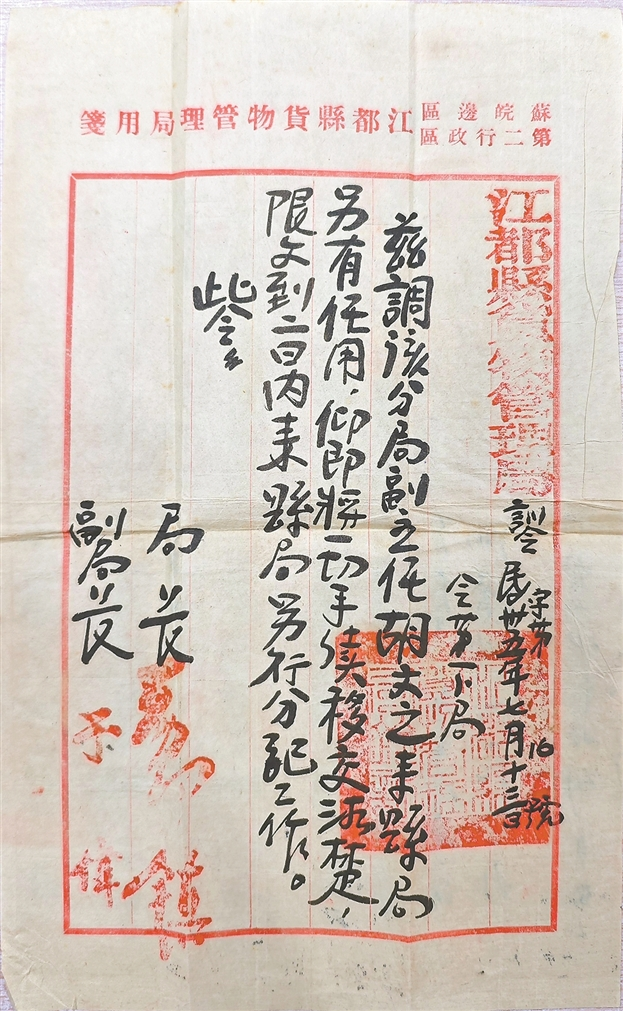 蘇皖邊區
第二行政區
江都縣貨物管理局用箋
江都縣貨物管理局 訓令
字第16號
民卅五年七月十三日
令第一分局
茲調該分局副主任胡文之來縣局
另有任用，仰即將一切手續移交清楚，
限文到二日内来縣局另行分配工作。
此令
局長
副局長